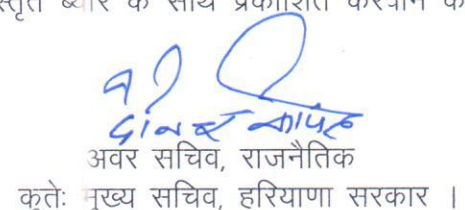 स्तृत ब्यौरे के साथ प्रकाशित करवाने के
अवर सचिव, राजनैतिक
कृतेः मुख्य सचिव, हरियाणा सरकार ।